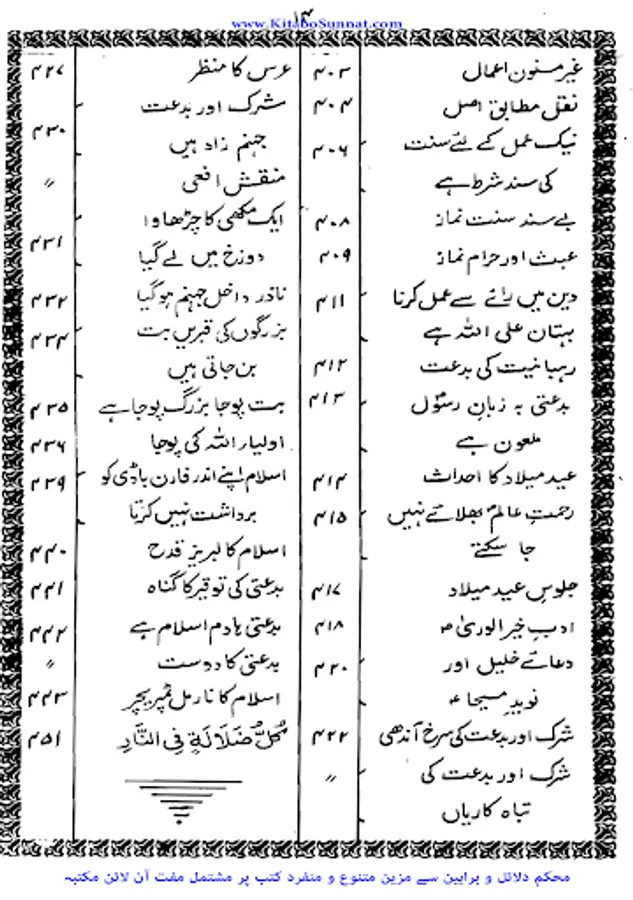 www.KitaboSunnat.com
۱۴
غیر مسنون اعمال ۴۰۳
نقل مطابق اصل ۴۰۴
نیک عمل کے لئے سنت ۴۰۶
کی سند شرط ہے
بے سند سنت نماز ۴۰۸
عبث اور حرام نماز ۴۰۹
دین میں رائے سے عمل کرنا ۴۱۱
بہتان علی اللہ ہے
رہبانیت کی بدعت ۴۱۲
بدعتی بہ زبانِ رسولؐ ۴۱۳
ملعون ہے
عید میلاد کا احداث ۴۱۴
رحمتِ عالمؐ بھلائے نہیں ۴۱۵
جا سکتے
جلوسِ عید میلاد ۴۱۷
ادبِ خیر الوریٰ ؐ ۴۱۸
دعائے خلیل اور ۴۲۰
نویدِ مسیحا
شرک اور بدعت کی سرخ آندھی ۴۲۲
شرک اور بدعت کی 〃
تباہ کاریاں
عرس کا منظر ۴۲۷
شرک اور بدعت ۴۳۰
جہنم زاد ہیں
منقش افعی 〃
ایک مکھی کا چڑھاوا ۴۳۱
دوزخ میں لے گیا
ناذر داخل جہنم ہو گیا ۴۳۲
بزرگوں کی قبریں بت ۴۳۴
بن جاتی ہیں
بت پوجا بزرگ پوجا ہے ۴۳۵
اولیاء اللہ کی پوجا ۴۳۶
اسلام اپنے اندر فارن باڈی کو ۴۳۹
برداشت نہیں کرتا
اسلام کا لبریز قدح ۴۴۰
بدعتی کی توقیر کا گناہ ۴۴۱
بدعتی ہادم اسلام ہے ۴۴۲
بدعتی کا دوست 〃
اسلام کا نارمل ٹمپریچر ۴۴۳
كُلُّ ضَلَالَةٍ فِي النَّارِ ۴۵۱
محکم دلائل و براہین سے مزین متنوع و منفرد کتب پر مشتمل مفت آن لائن مکتبہ